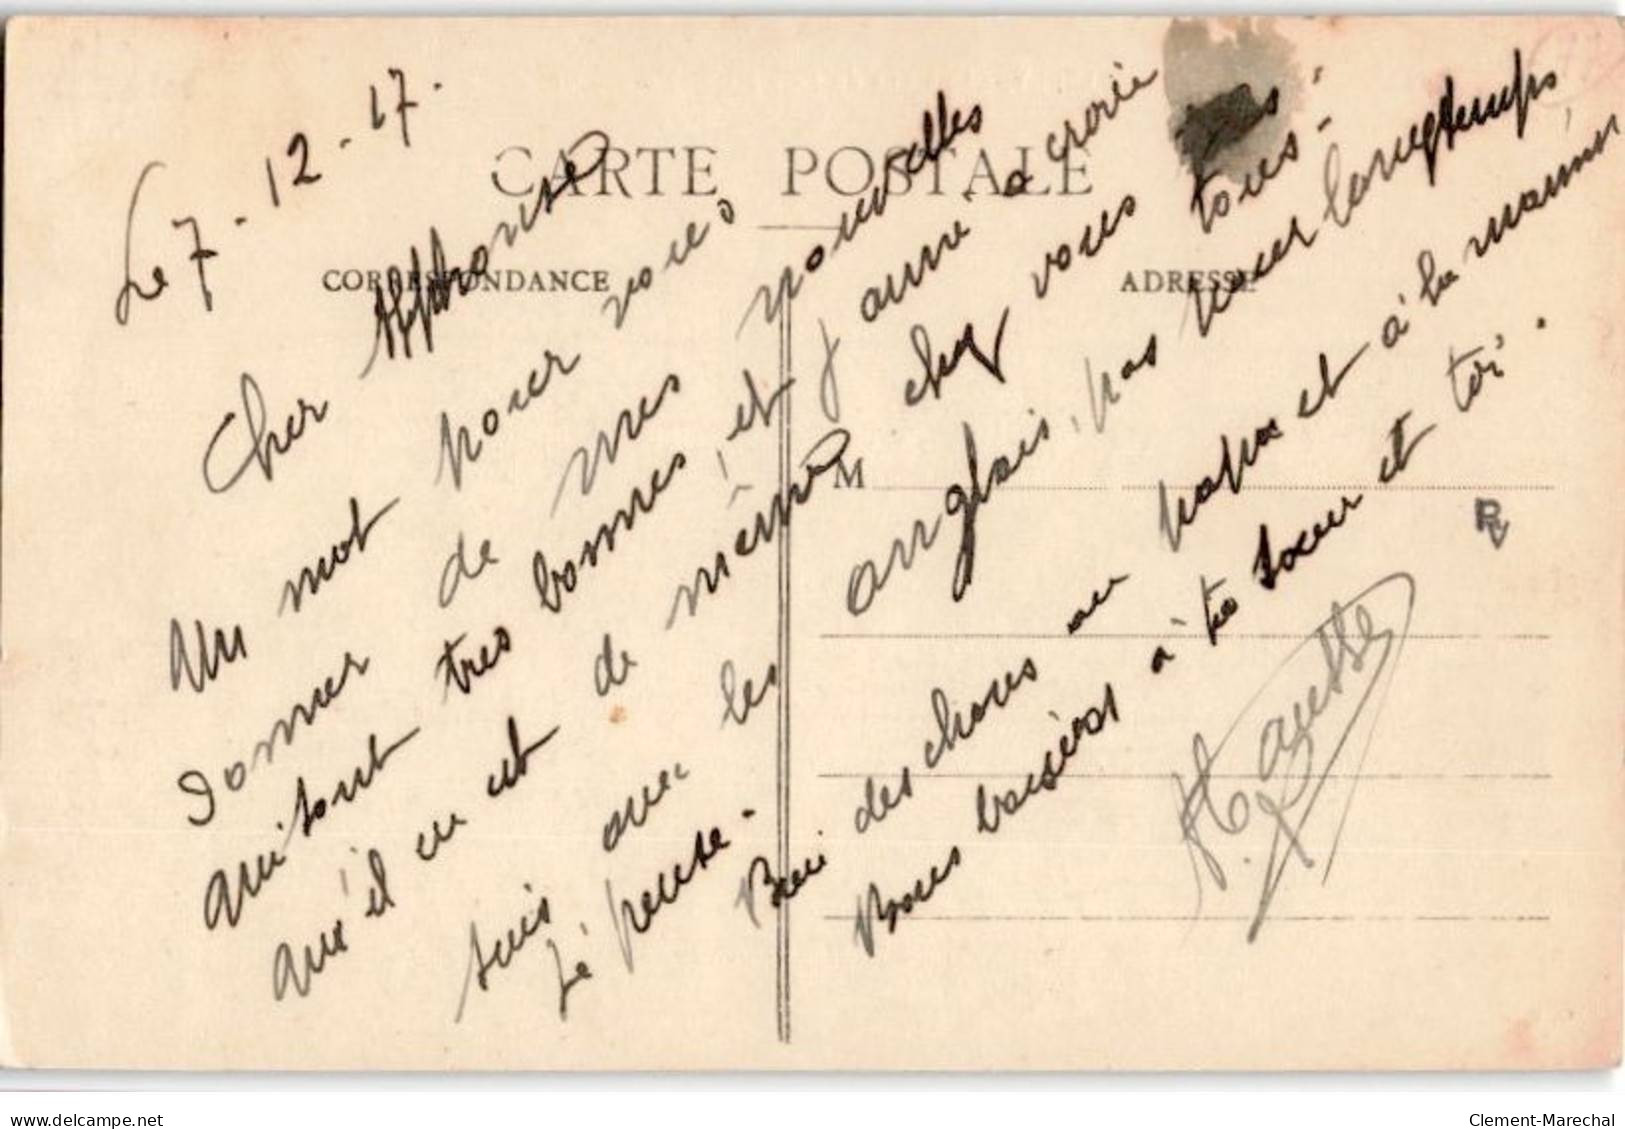 Le 7-12-17.
CARTE POSTALE
CORRESPONDANCE
ADRESSE
M
Cher Alphonse
Un mot pour vous
donner de mes nouvelles
qui sont tres bonnes, et j'aime à croire
qu'il en est de même chez vous tous.
suis avec les anglais, pas pour longtemps,
je pense.
Bien des choses au papa et à la maman
Bons baisers à ta soeur et toi.
delcampe.net
Clement-Marechal